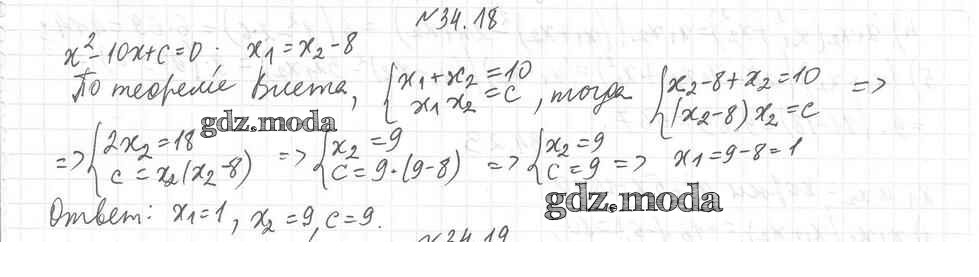 №34.18
x² - 10x + c = 0; x₁ = x₂ - 8
По теореме Виета, { x₁ + x₂ = 10, x₁ x₂ = c, тогда { x₂ - 8 + x₂ = 10, (x₂ - 8) x₂ = c =>
=> { 2x₂ = 18, c = x₂(x₂ - 8) => { x₂ = 9, c = 9·(9-8) => { x₂ = 9, c = 9 => x₁ = 9 - 8 = 1
gdz.moda
gdz.moda
Ответ: x₁ = 1, x₂ = 9, c = 9.
№34.19